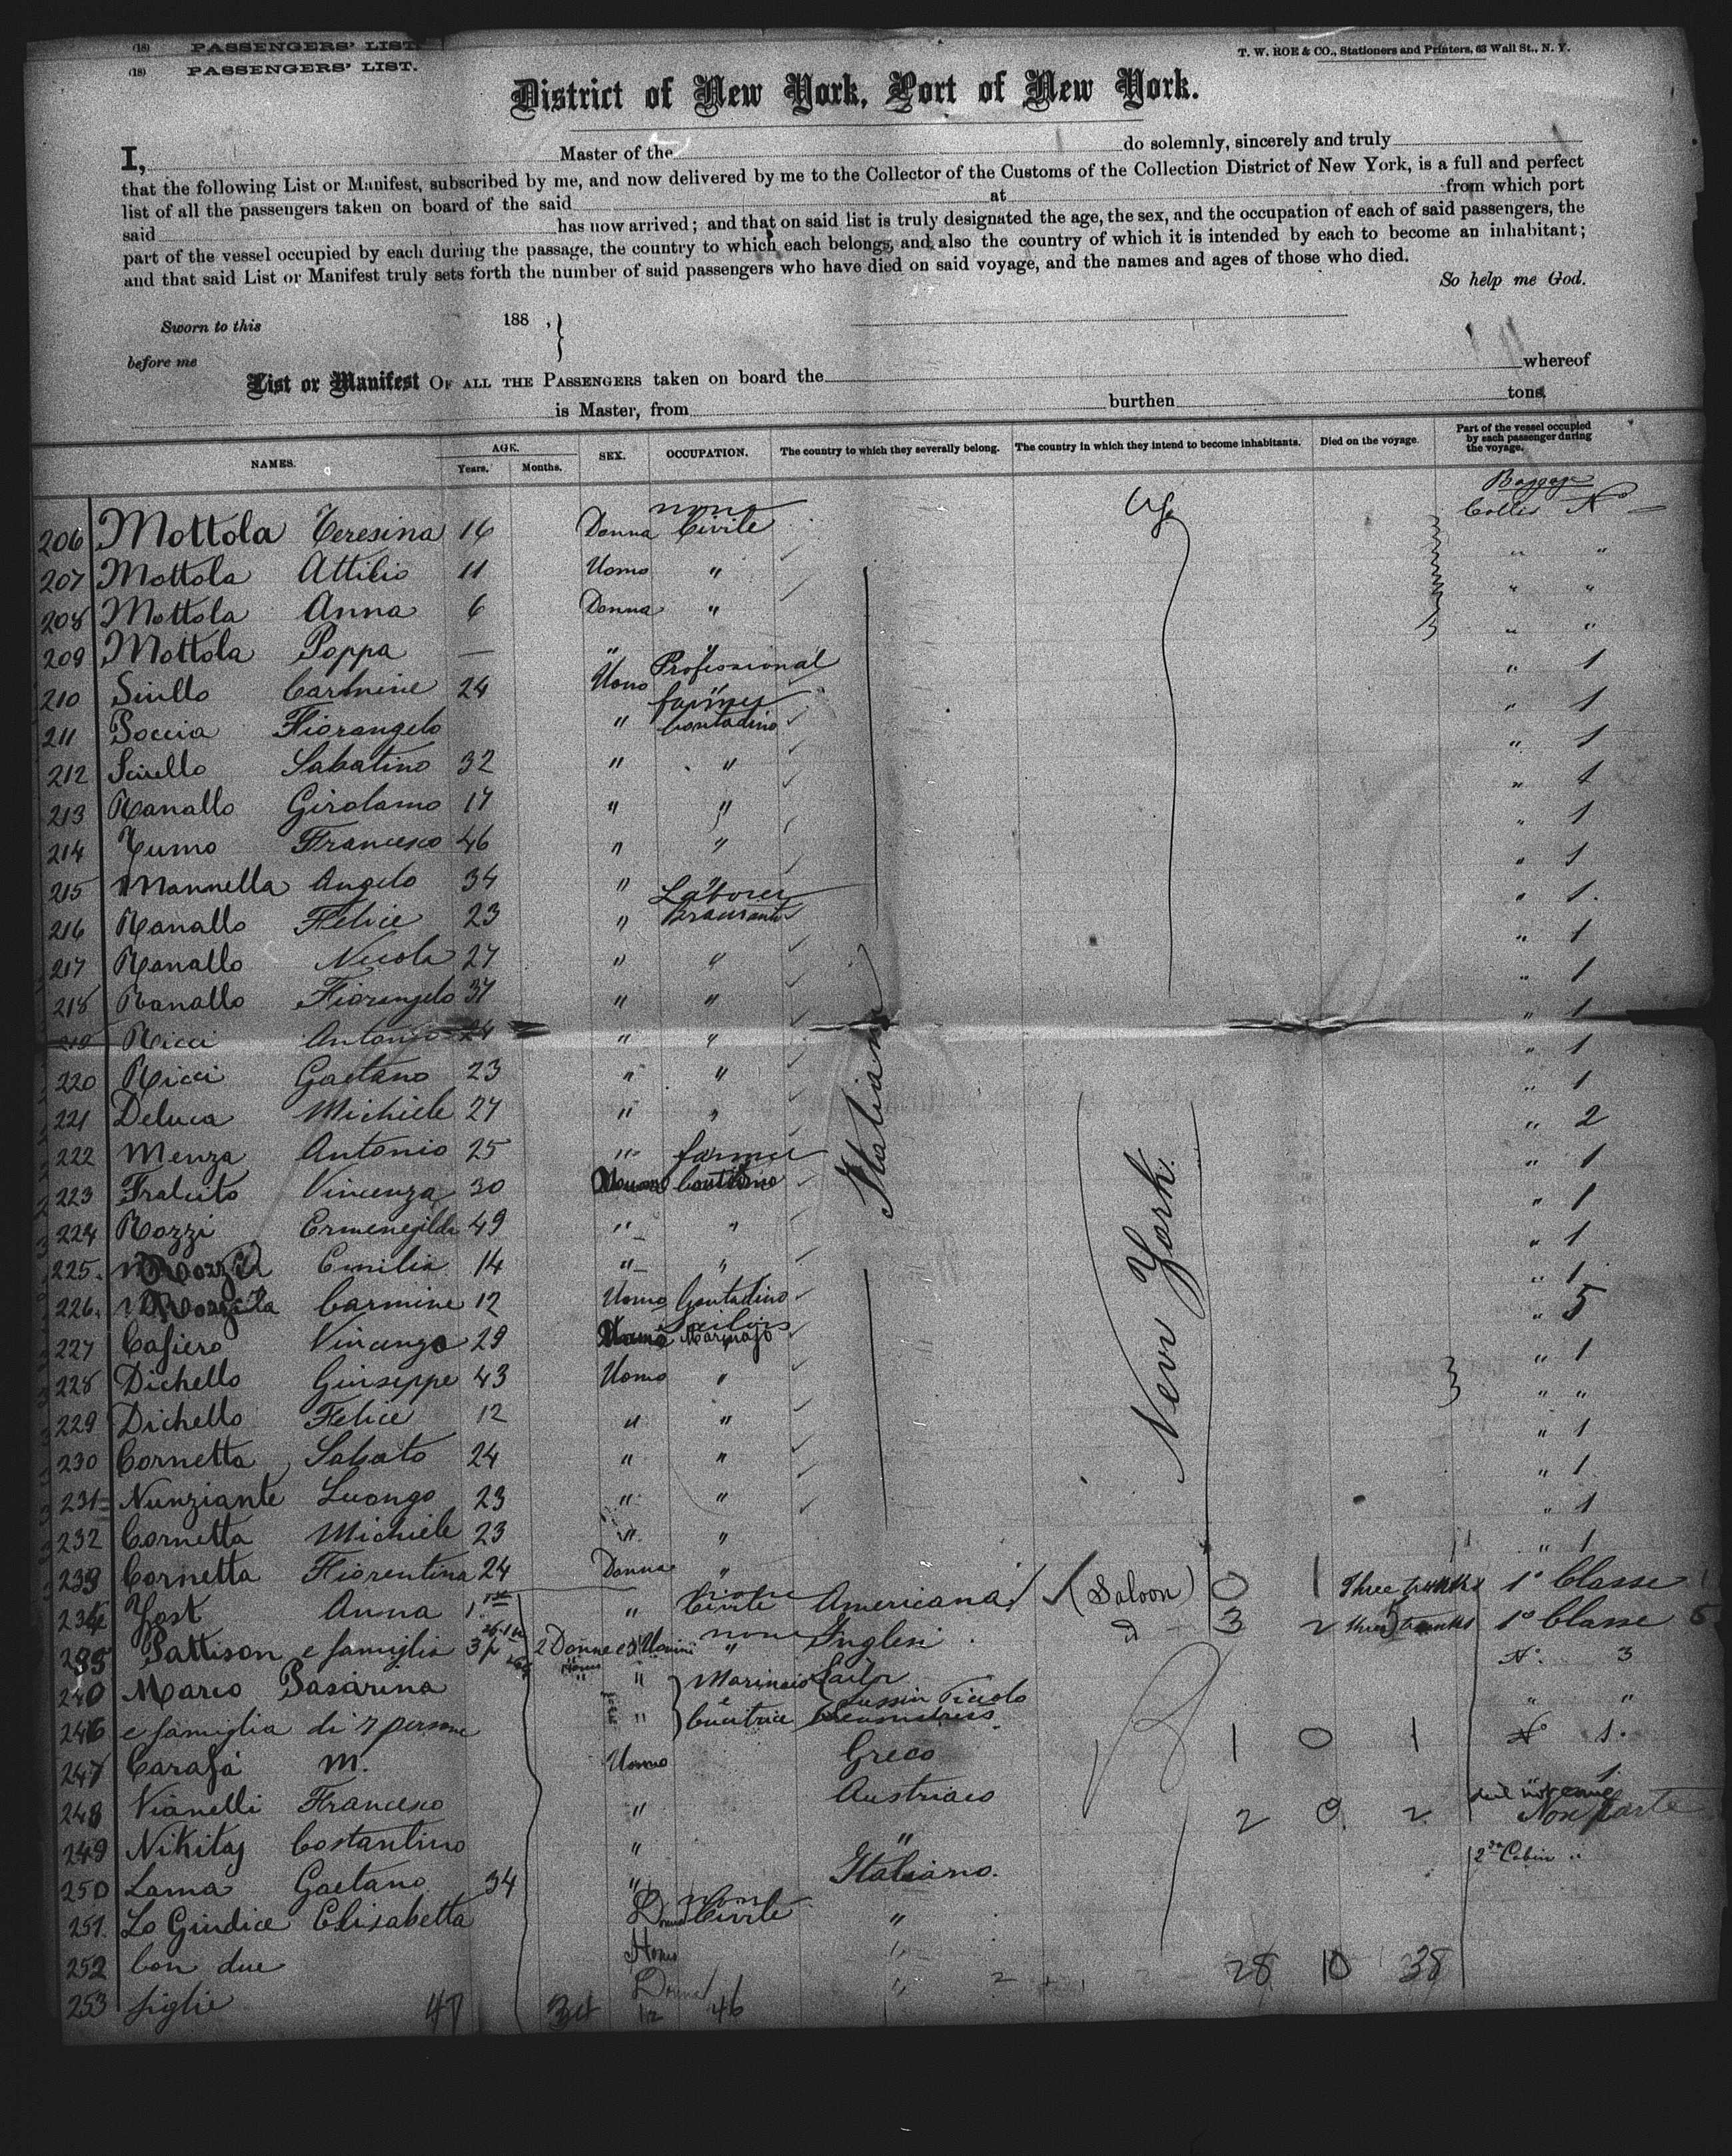 (18) PASSENGERS' LIST.
(18) PASSENGERS' LIST.
T. W. ROE & CO., Stationers and Printers, 63 Wall St., N. Y.
District of New York, Port of New York.
I, Master of the do solemnly, sincerely and truly
that the following List or Manifest, subscribed by me, and now delivered by me to the Collector of the Customs of the Collection District of New York, is a full and perfect
list of all the passengers taken on board of the said at from which port
said has now arrived; and that on said list is truly designated the age, the sex, and the occupation of each of said passengers, the
part of the vessel occupied by each during the passage, the country to which each belongs, and also the country of which it is intended by each to become an inhabitant;
and that said List or Manifest truly sets forth the number of said passengers who have died on said voyage, and the names and ages of those who died.
So help me God.
Sworn to this 188 ,
before me
List or Manifest OF ALL THE PASSENGERS taken on board the whereof
is Master, from burthen tons.
NAMES. AGE. Years. Months. SEX. OCCUPATION. The country to which they severally belong. The country in which they intend to become inhabitants. Died on the voyage. Part of the vessel occupied by each passenger during the voyage.
Baggage
none Collis No
206 Mottola Teresina 16 Donna Civile
207 Mottola Attilio 11 Uomo " " "
208 Mottola Anna 6 Donna " " "
209 Mottola Peppa — " " " "
Professional
210 Siullo Carmine 24 Uomo " " 1
farmer
211 Poccia Fiorangelo " Contadino " 1
212 Sciullo Sabatino 32 " " " 1
213 Ranallo Girolamo 17 " " " 1
214 Tumo Francesco 46 " " " 1
215 Mannella Angelo 34 " " " 1
Laborer
216 Ranallo Felice 23 " " 1
217 Ranallo Nicola 27 " " " 1
218 Ranallo Fiorangelo 37 " " " 1
219 Ricci Antonio 24 " " " 1
220 Ricci Gaetano 23 " " " 1
221 Deluca Michiele 27 " " " 1
222 Menza Antonio 25 " farmer " 2
223 Vincenza 30 " 1
224 Rozzi Ermenegilda 49 " " " 1
225. Emilia 14 " " " 1
226. Carmine 12 Uomo Contadino " 1
Sailors
227 Cafiero Vincenzo 29 Marinajo " 5
228 Dichello Giuseppe 43 Uomo " " 1
229 Dichello Felice 12 " " " "
230 Cornetta Sabato 24 " " " 1
231 Nunziante Luongo 23 " " " 1
232 Cornetta Michiele 23 " " " 1
233 Cornetta Fiorentina 24 Donna " " 1
Italiana
New York.
none
234 Yost Anna " Civile Americana (Saloon) 0 1 Three trunks 1° Classe
none
235 Pattison e famiglia 3 2 Donne " Inglesi 3 2 trunks 1° Classe 5
No. 3
240 Marco Pasarina " Marinaio Sailor
Lussin Picolo
246 e famiglia di 7 persone " Cucitrice " "
247 Carafa M. Uomo Greco 1 0 1 No 1.
248 Vianelli Francesco " Austriaco 1
Non parte
249 Nikitas Costantino " " 2 0 2
2nd Cabin
250 Lama Gaetano 34 " Italiano.
none
251. Lo Giudice Elisabetta Donna Civile "
252 Con due "
253 figlie Donna "
28 10 38
47 34 12 46